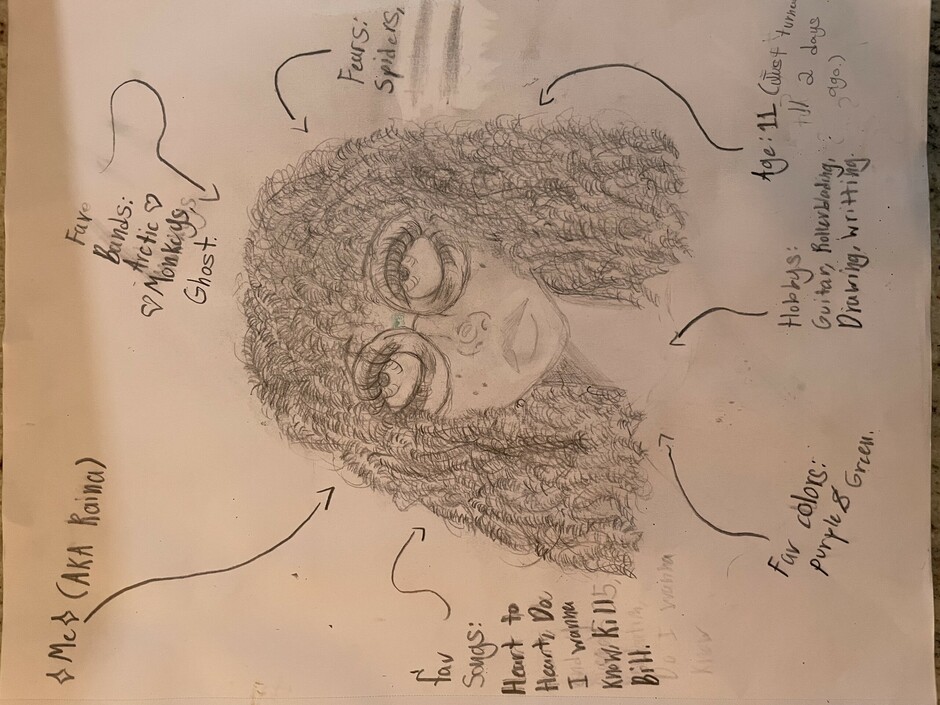 ✧Me✧ (AKA Raina)
Fav
Bands:
♡Arctic♡
Monkeys
Ghost.
Fears:
Spiders,
fav
Songs:
Heart to
Heart, Do
I wanna
Know, Kill
Bill.
Do I wanna
Know
Age: 11 (Just turned
till 2 days
ago.)
Hobbys:
Guitar, Rollerblading,
Drawing, writting.
Fav colors:
purple &
Green.